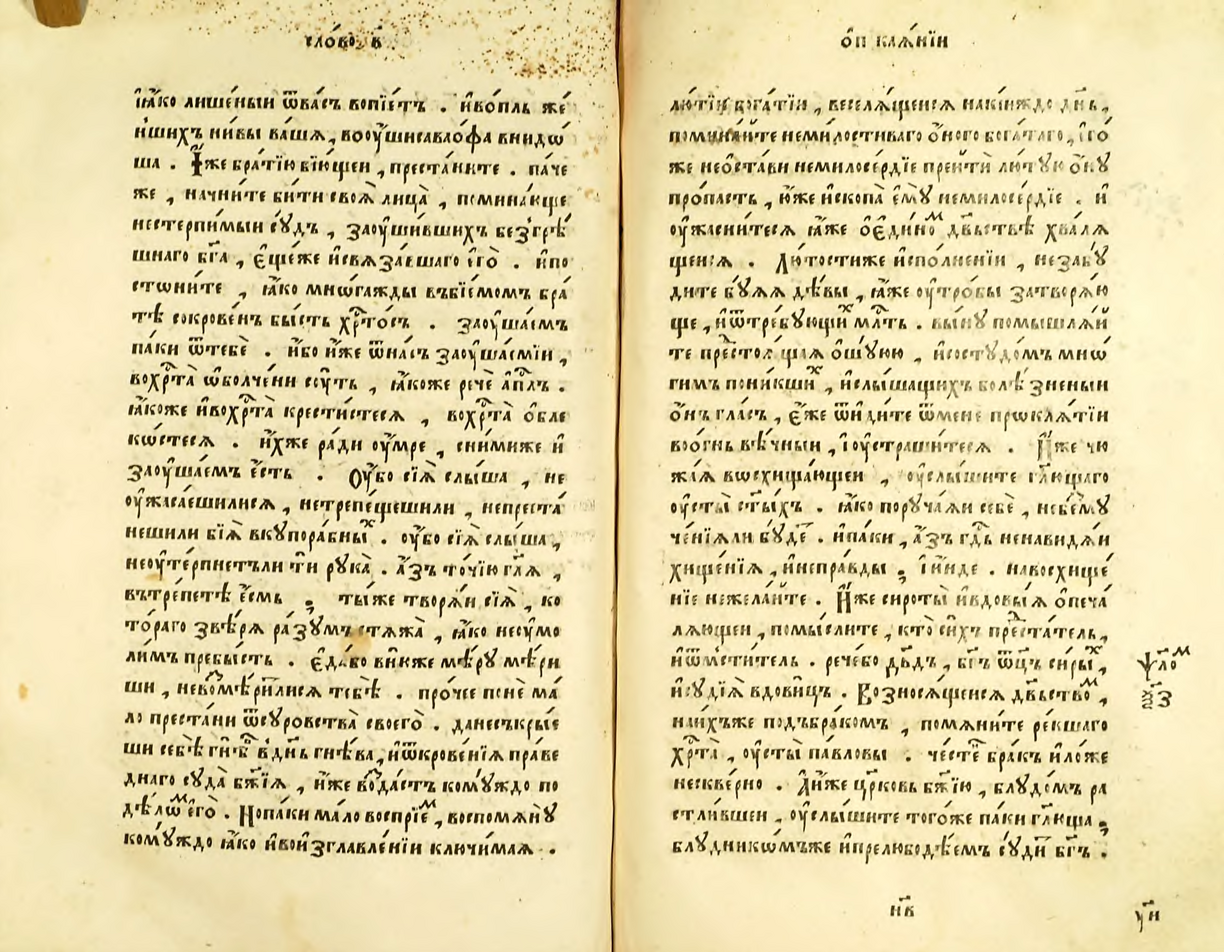 сло́во в҃
ꙗ҆́кѡ лише́ныи ѿва́съ вопїе́тъ . и҆во́пль же́
нши́хъ ни́вы ва́шѧ , вооу҆́шисаваоѳа внидѡ́
ша . І҆́же бра́тїю бїю́щеи , преста́ните . па́че
же , начни́те би́ти своѧ̀ лица̀ , помина́юще
нестерпи́мыи сꙋ́дъ , заоу҆ши́вшихъ безгрѣ́
шнаго бг҃а , є҆ще́же и҆свѧза́вшаго є҆го̀ . и҆по
стѡни́те , ꙗ҆́ко мно́гажды въбїе́момъ бра́
тѣ сокрове́нъ бы́сть хрⷭ҇то́съ . заоу҆ша́емъ
па́ки ѿтебѐ . и҆́бо и҆́же ѿна́съ заоу҆ша́емїи ,
вохрⷭ҇та̀ ѡ҆болче́ни сꙋ́ть , ꙗ҆́коже речѐ а҆пⷭ҇лъ .
ꙗ҆́коже и҆вохрⷭ҇та̀ крести́стесѧ , вохрⷭ҇та̀ ѻ҆бле
ко́стесѧ . и҆́хже ра́ди оу҆́мре , сни́миже и҆
заоу҆ша́емъ є҆́сть . Оу҆́бо сїѧ̀ слы́ша , не
оу҆жаса́ешилисѧ , нетрепе́щешили , непреста́
нешили бїѧ̀ вкꙋпора́бныⷯ . оу҆́бо сїѧ̀ слы́ша ,
неоу҆те́рпнетъли тѝ рꙋка̀ . а҆́зъ то́чїю гл҃ѧ ,
вътре́петѣ є҆́смь ; ты́же творѧ́и сїѧ̀ , ко
то́раго ѕвѣ́рѧ ра́зꙋмъ стѧжа̀ , ꙗ҆́ко неоу҆мо
ли́мъ пребы́сть . є҆да́бо ви́нюже мѣ́рꙋ мѣ́ри
ши , невозмѣ́ритисѧ тебѣ̀ . про́чее понѐ ма́
ло преста́ни ѿсꙋро́вства̀ своегѡ̀ . данесъкры́е
ши себѣ̀ гнѣ́въ вдн҃ь гнѣ́ва , и҆ѿкрове́нїѧ пра́ве
днаго сꙋда̀ бж҃їѧ , и҆́же во́здастъ комꙋ́ждо по
дѣ́лѡⷨ є҆го̀ . Но́паки ма́ло воспрїе́мⷨ , воспомѧнꙋ̀
комꙋ́ждо ꙗ҆́ко и҆вои҆зглавле́нїи ключи́маѧ .
ѻ҆п каѧ́нїи
лю́тїи бога́тїи , веселѧ́щеисѧ накі́иждо дн҃ь ,
помина́йте неми́лостиваго ѻ҆́ного бога́таго , є҆го́
же неѻ҆ста́ви немилосе́рдїе преитѝ лю́тꙋю ѻ҆́нꙋ
про́пасть , ю҆́же и҆скопа̀ є҆мꙋ̀ немилосе́рдїе . и҆
оу҆жасни́тесѧ ꙗ҆́же ѻ҆є҆ди́ноⷨ дв҃ьствѣ хва́лѧ
щеисѧ . Лю́тостиже и҆спо́лненїи , незабꙋ́
дите бꙋ́ѧѧ дѣ́вы , ꙗ҆́же оу҆тро́бы затворѧ́ю
ще , и҆ѿтре́бꙋющиⷯ млⷭ҇ть . вы́нꙋ помышлѧ́й
те престоѧ́щаѧ ѻ҆шꙋ́юю , и҆состꙋдо́мъ мнѡ́
гимъ пони́кшиⷯ , и҆слы́шащихъ болѣ́зненыи
ѻ҆́нъ гла́съ , є҆́же ѿиди́те ѿменѐ прокла́тїи
воо́гнь вѣ́чныи , і҆оу҆страши́тесѧ . И҆́же чю
жа́ѧ восхища́ющеи , оу҆слы́шите гл҃ющаго
оу҆сты̀ ст҃ы́хъ . ꙗ҆́ко порꙋча́ѧи себѐ , небемꙋ
че́нїѧли бꙋ́де . и҆па́ки , а҆́зъ гдⷭ҇ь ненави́дѧи
хище́нїѧ , и҆непра́вды ; і҆и҆́нде . навосхище́
нїе нежела́йте . И҆́же сироты̀ и҆вдовы́ѧ ѻ҆печа́
лѧющеи , помы́слите , кто̀ си́хъ преⷣста́тель ,
и҆ѿмсти́тель . рече́бо дв҃дъ , бг҃ъ ѻ҆ц҃ъ си́рыⷯ ,
и҆сꙋдїѧ̀ вдови́цъ . Возносѧ́щеисѧ дв҃ьствоⷨ ,
наи́хъже подъбра́комъ , помѧни́те ре́кшаго
хрⷭ҇та̀ , оу҆сты̀ па́вловы . че́стеⷩ бра́къ и҆ло́же
нескве́рно . А҆и҆́же цр҃ковь бж҃їю , блꙋдо́мъ ра
стли́вшеи , оу҆слы́шите того́же па́ки гл҃юща ;
блꙋдникѡ́мъже и҆прелюбодѣ́емъ сꙋ́ди бг҃ъ .
ѱло́ⷨ
ѯ҃з
н҃в
у҃н